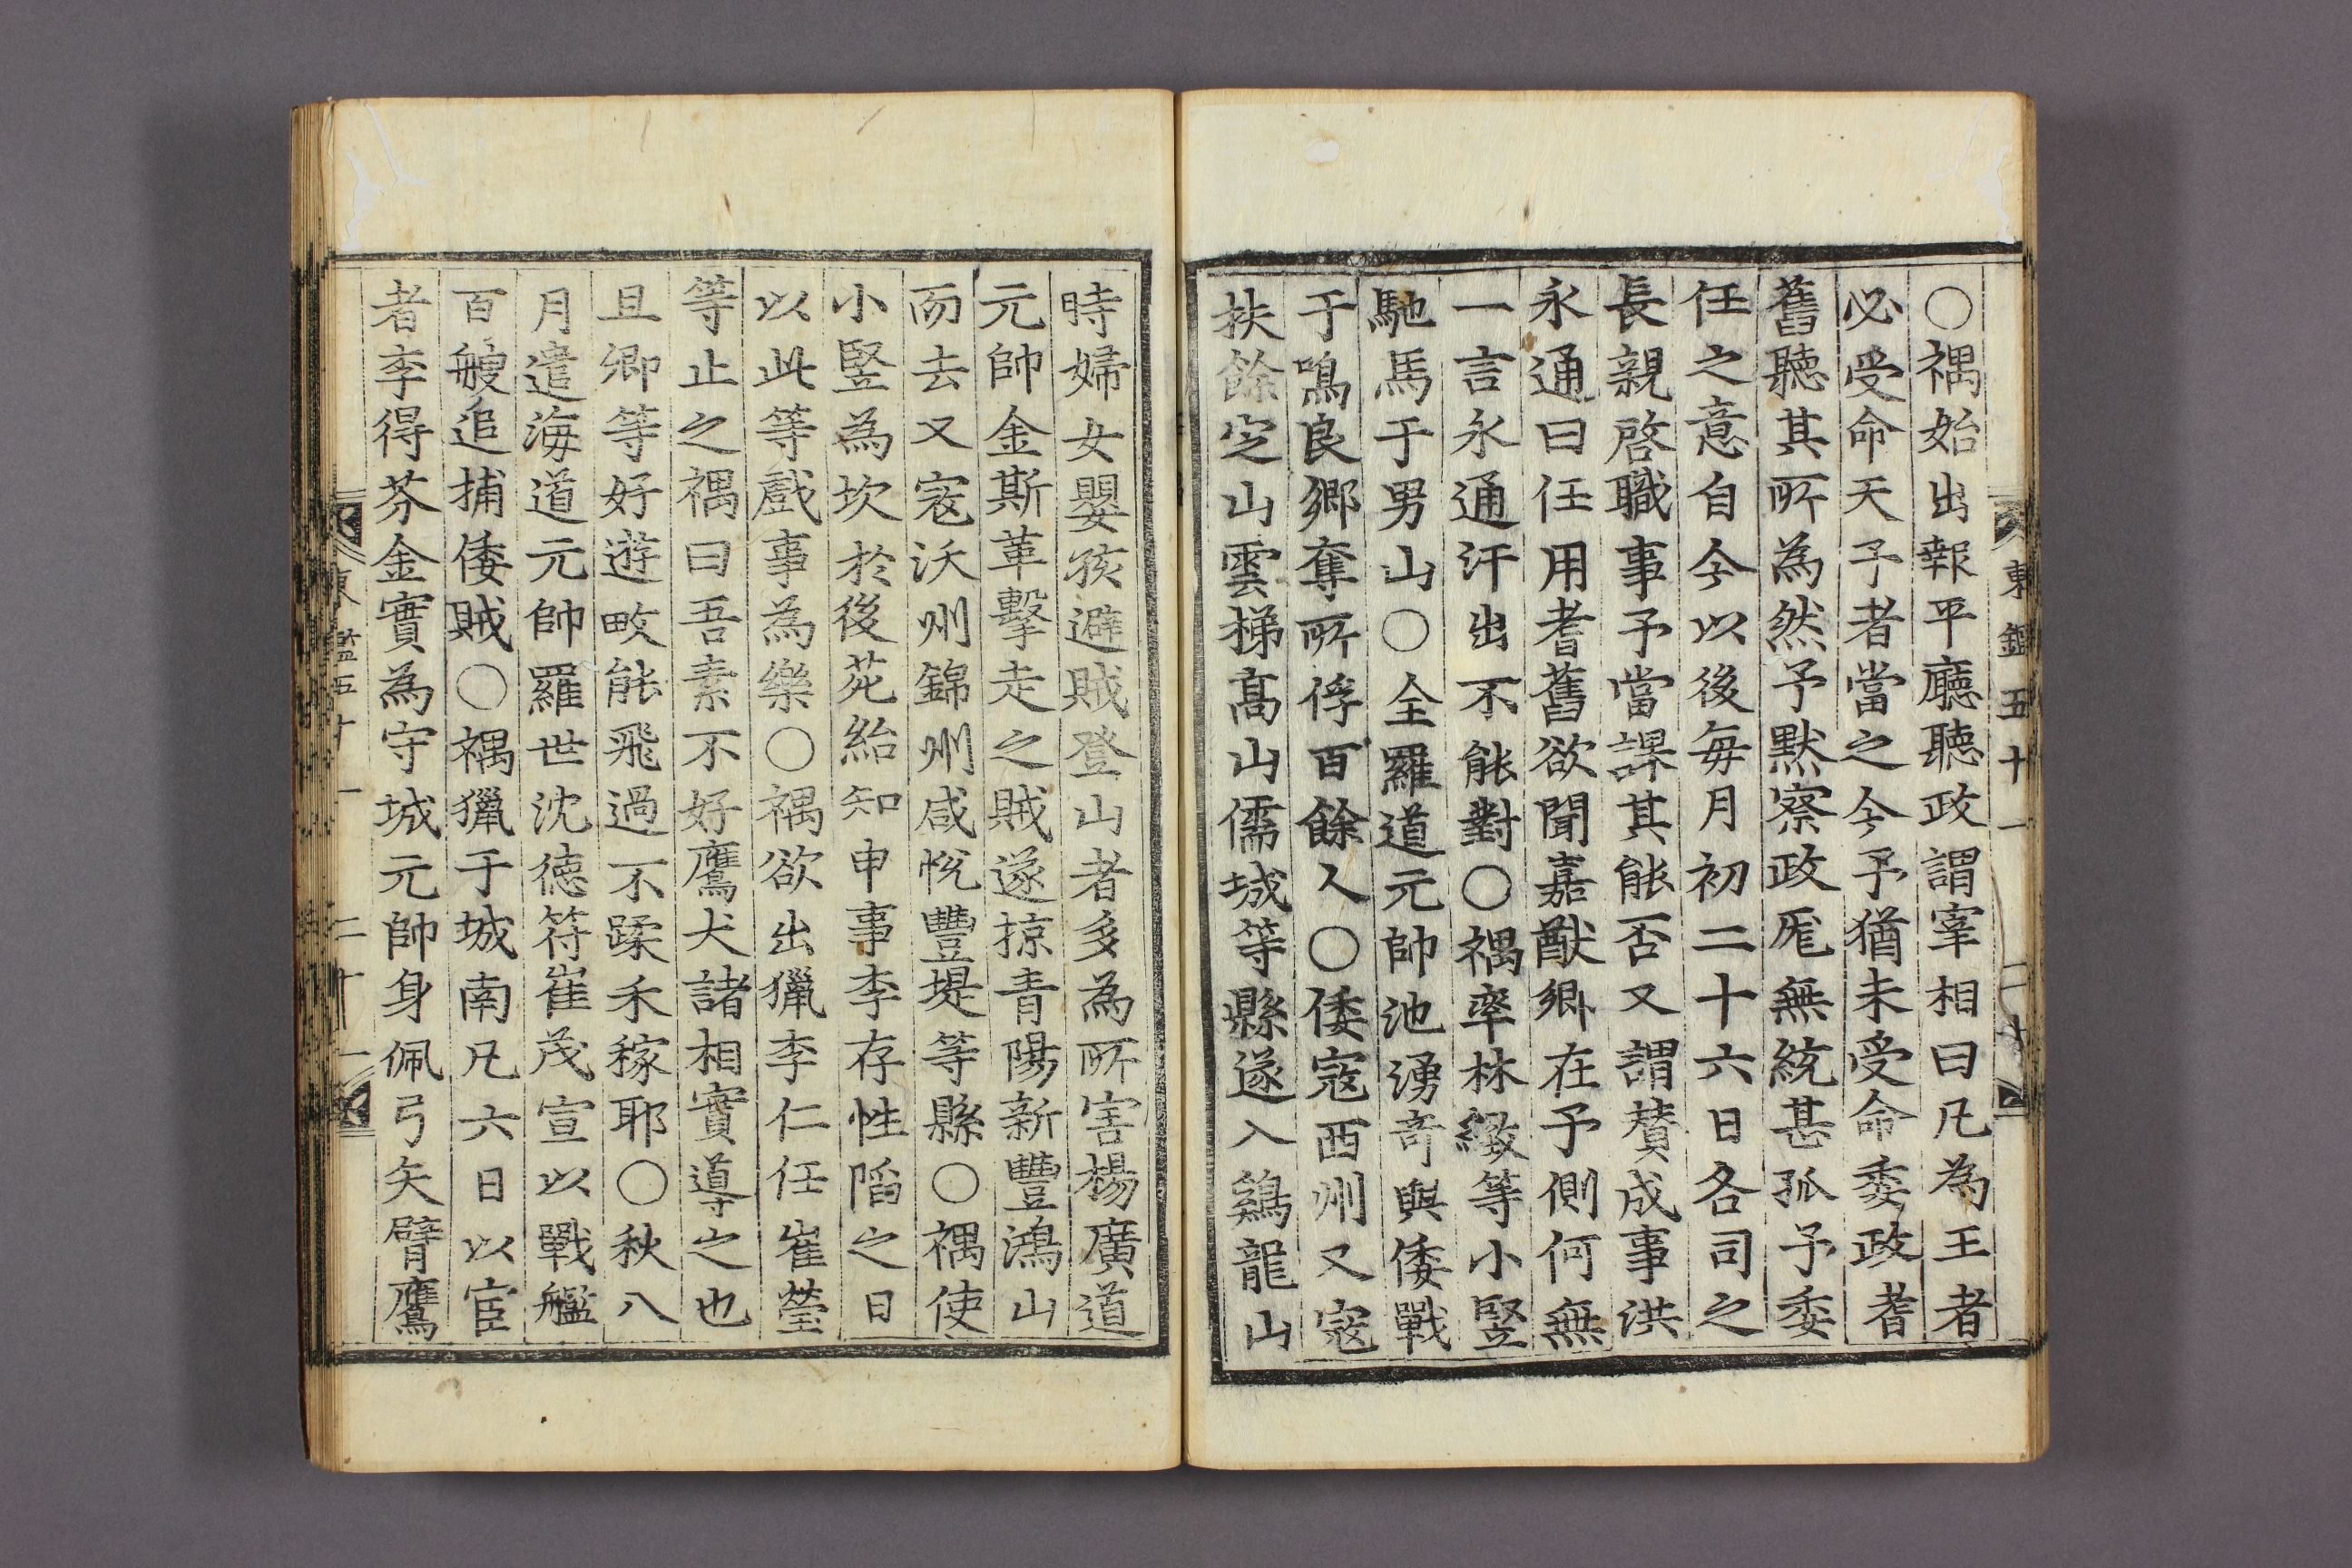 東鑑五十一 二十
〇禑始出報平廳聽政謂宰相曰凡為王者
必受命天子者當之今予猶未受命委政耆
舊聽其所為然予默察政厖無統甚孤予委
任之意自今以後每月初二十六日各司之
長親啓職事予當課其能否又謂贊成事洪
永通曰任用耆舊欲聞嘉猷卿在予側何無
一言永通汗出不能對〇禑率林㮈等小竪
馳馬于男山〇全羅道元帥池湧奇與倭戰
于鳴良鄉奪所俘百餘人〇倭寇西州又寇
扶餘定山雲梯高山儒城等縣遂入鷄龍山
時婦女嬰孩避賊登山者多為所害楊廣道
元帥金斯革擊走之賊遂掠青陽新豐鴻山
而去又寇沃州錦州咸悅豐堤等縣〇禑使
小竪為坎於後苑紿知申事李存性陷之日
以此等戲事為樂〇禑欲出獵李仁任崔瑩
等止之禑曰吾素不好鷹犬諸相實導之也
且卿等好遊畋能飛過不蹂禾稼耶〇秋八
月遣海道元帥羅世沈德符崔茂宣以戰艦
百艘追捕倭賊〇禑獵于城南凡六日以宦
者李得芬金實為守城元帥身佩弓矢臂鷹
東鑑五十一 二十一